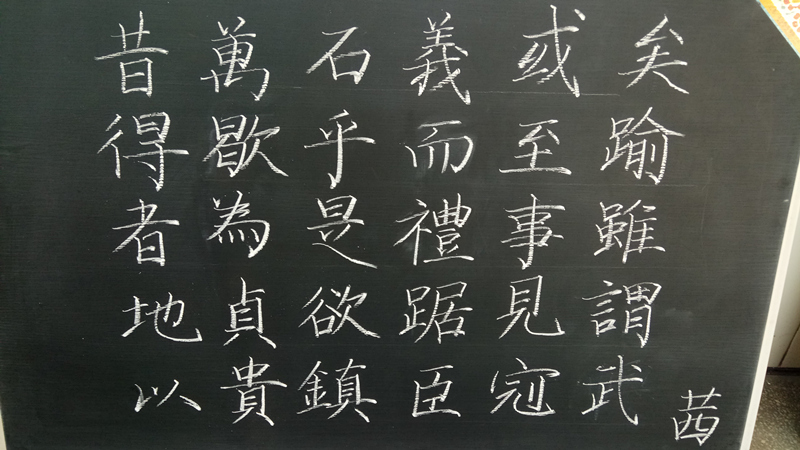 矣踰雖謂武
或至事見寇
義而禮踞臣
石乎是欲鎮
萬歇為貞貴
昔得者地以
茜